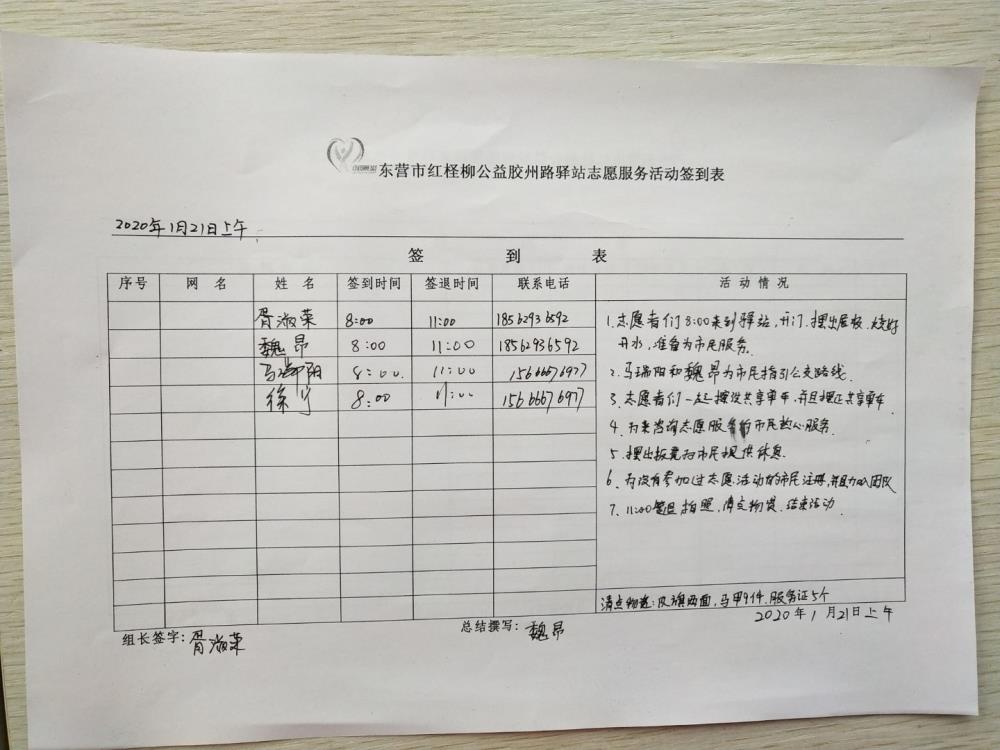 东营市红柽柳公益胶州路驿站志愿服务活动签到表
2020年1月21日上午
签 到 表
序号 网 名 姓 名 签到时间 签退时间 联系电话 活 动 情 况
胥淑荣 8:00 11:00 18562936592
魏昂 8:00 11:00 18562936592
马瑞阳 8:00. 11:00 15666676977
徐 8:00 11:00 15666676977
1.志愿者们8:00来到驿站,开门.摆出展板.烧好
开水,准备为市民服务.
2.马瑞阳和魏昂为市民指引公交路线.
3.志愿者们一起摆设共享单车,并且摆正共享单车
4.为来咨询志愿服务的市民热心服务.
5.摆出板凳为市民提供休息.
6.为没有参加过志愿活动的市民注册,并且加入团队
7.11:00签退拍照,清点物资.结束活动.
清点物资:反旗两面,马甲9件.服务证5个
2020年1月21日上午
组长签字:胥淑荣
总结撰写:魏昂